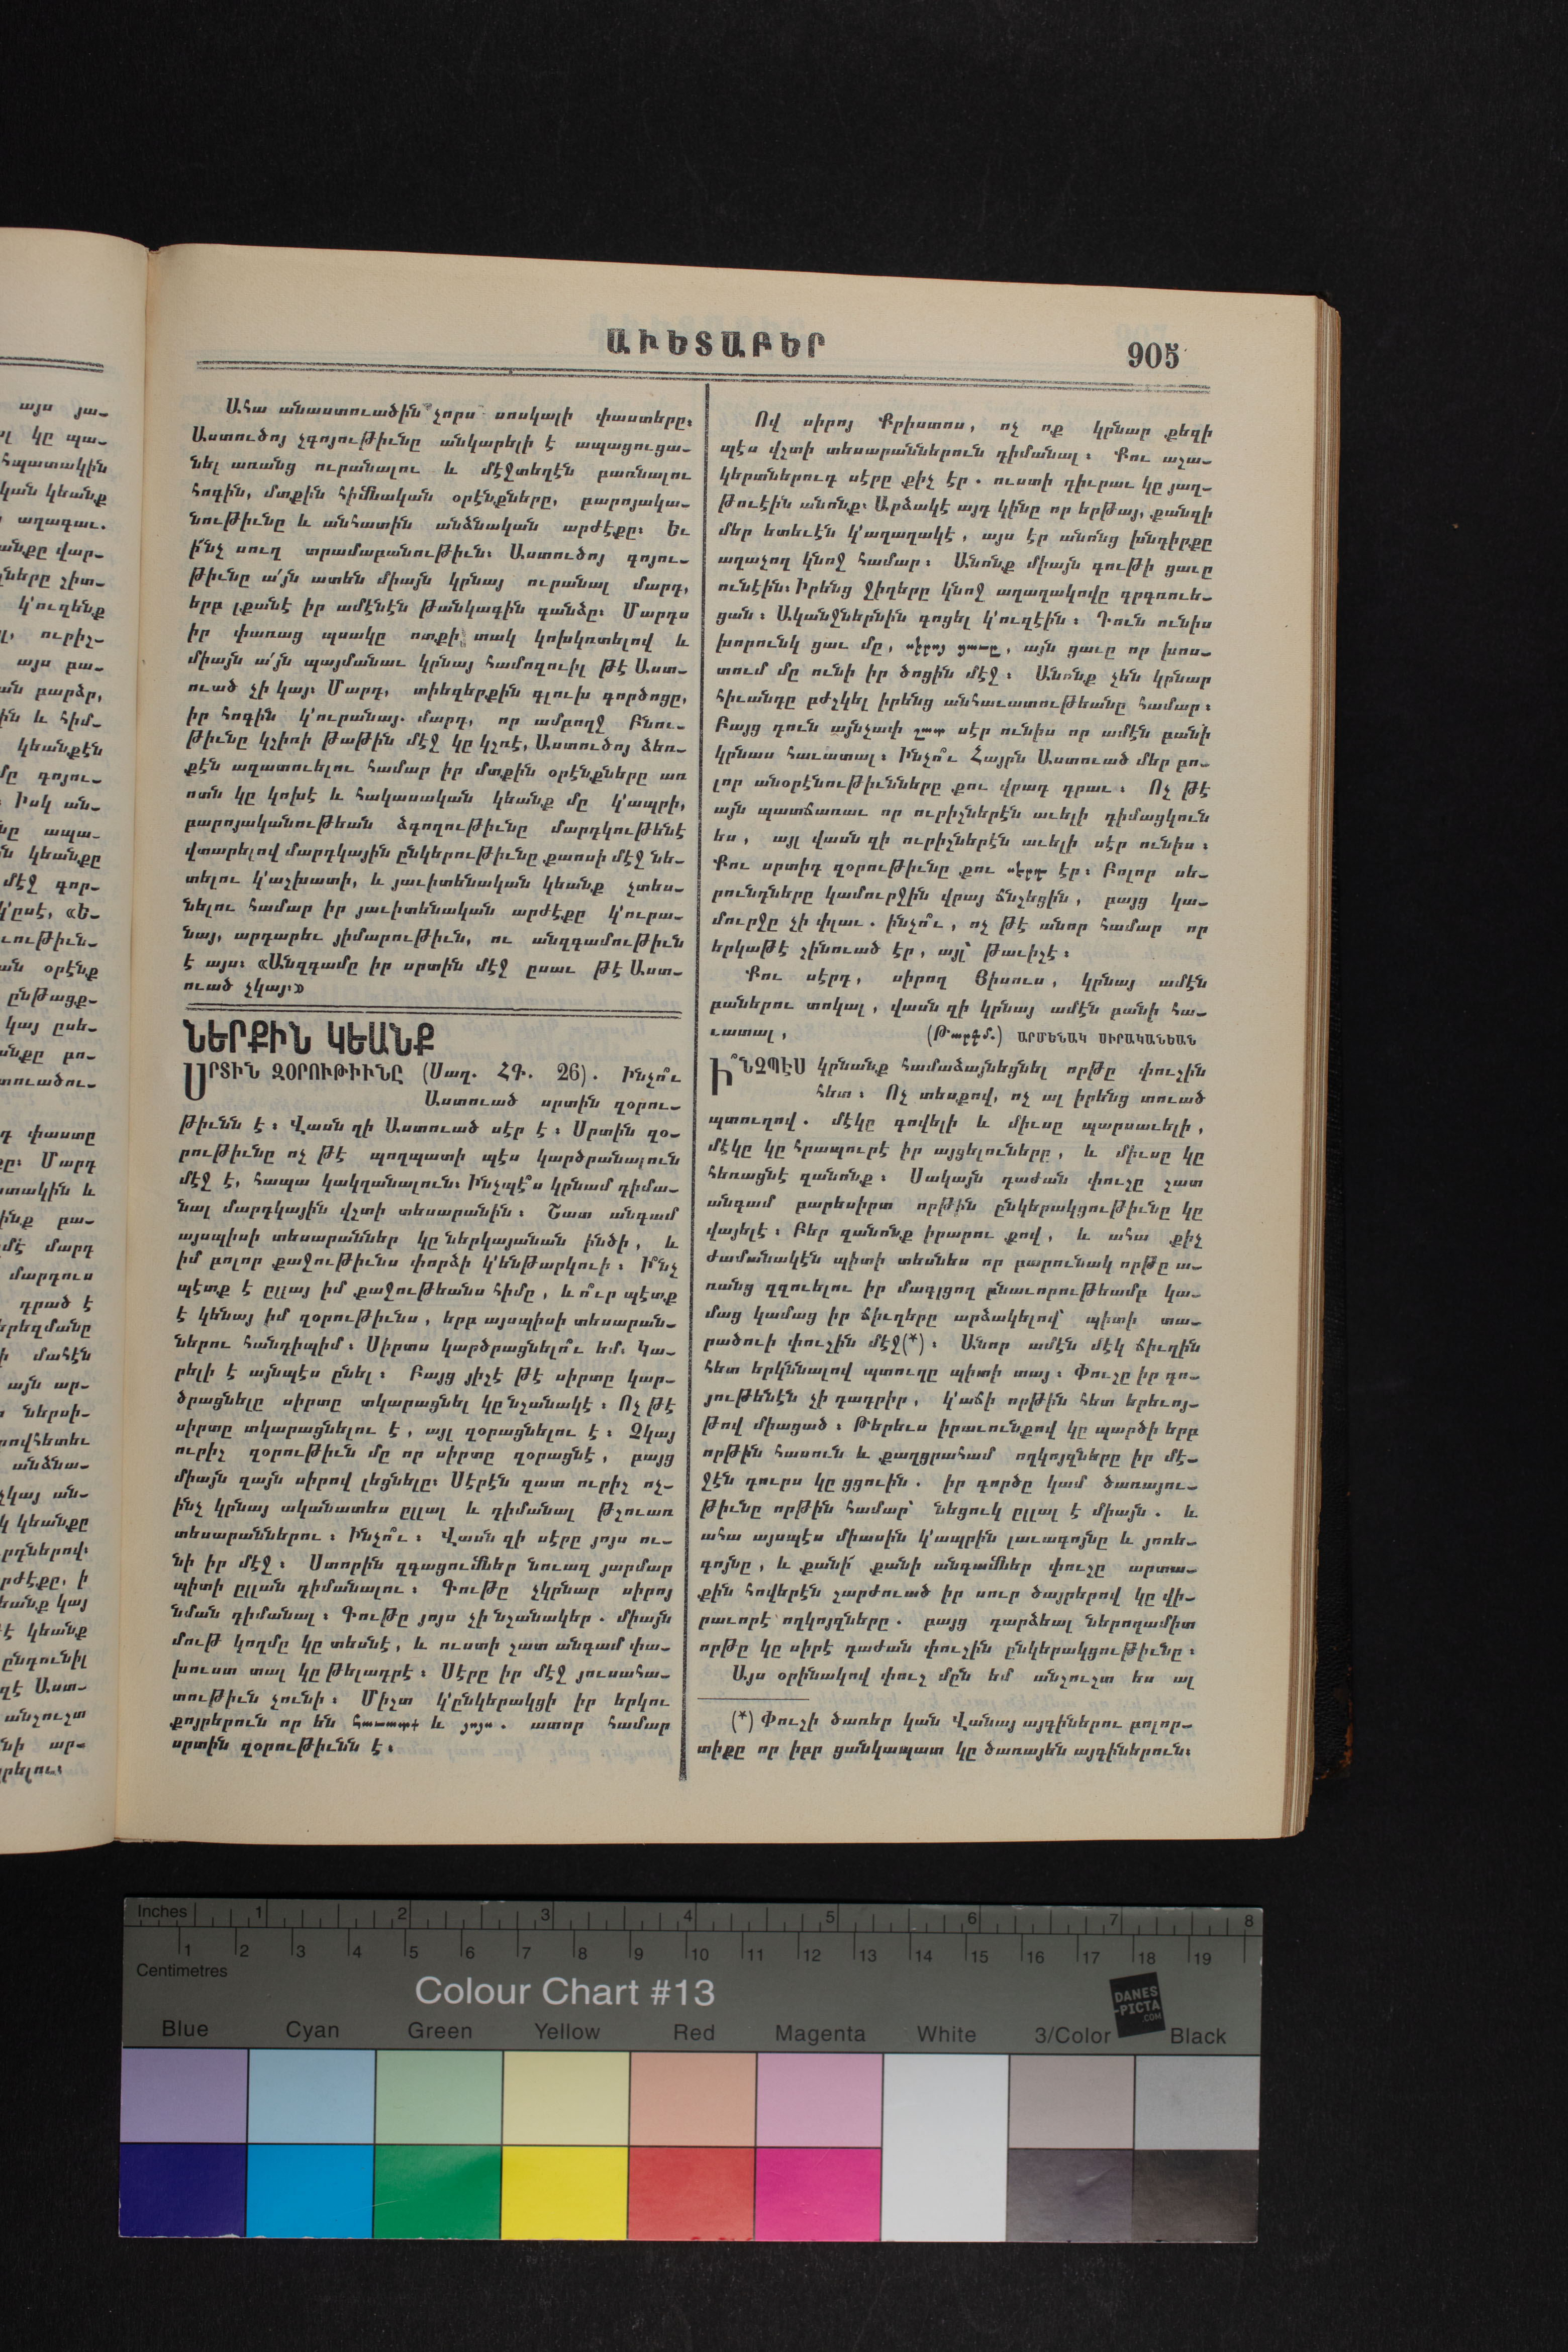 ԱՒԵՏԱԲԵՐ
905
Ահա անաստուածին չորս սոսկալի փաստերը։
Աստուծոյ չգոյութիւնը անկարելի է ապացուցա-
նել առանց ուրանալու և մէջտեղէն բառնալու
հոգին, մտքին հիմնական օրէնքները, բարոյակա-
նութիւնը և անհատին անձնական արժէքը։ Եւ
ի՜նչ սուղ տրամաբանութիւն։ Աստուծոյ գոյու-
թիւնը ա՛յն ատեն միայն կրնայ ուրանալ մարդ,
երբ լքանէ իր ամէնէն թանկագին գանձը։ Մարդս
իր փառաց պսակը ոտքի տակ կոխկռտելով և
միայն ա՛յն պայմանաւ կրնայ համոզուիլ թէ Աստ-
ուած չի կայ։ Մարդ, տիեզերքին գլուխ գործոցը,
իր հոգին կ՚ուրանայ. մարդ, որ ամբողջ Բնու-
թիւնը կշիռի թաթին մէջ կը կշռէ, Աստուծոյ ձեռ-
քէն ազատուելու համար իր մտքին օրէնքները առ
ոտն կը կոխէ և հակասական կեանք մը կ՚ապրի,
բարոյականութեան ձգողութիւնը մարդկութենէ
վտարելով մարդկային ընկերութիւնը քաոսի մէջ նե-
տելու կ՚աշխատի, և յաւիտենական կեանք չտես-
նելու համար իր յաւիտենական արժէքը կ՚ուրա-
նայ, արդարեւ յիմարութիւն, ու անզգամութիւն
է այս։ «Անզգամը իր սրտին մէջ ըսաւ թէ Աստ-
ուած չկայ։»
ՆԵՐՔԻՆ ԿԵԱՆՔ
ՍՐՏԻՆ ԶՕՐՈՒԹԻՒՆԸ (Սաղ. ՀԳ. 26). Ինչո՞ւ
Աստուած սրտին զօրու-
թիւնն է։ Վասն զի Աստուած սէր է։ Սրտին զօ-
րութիւնը ոչ թէ պողպատի պէս կարծրանալուն
մէջ է, հապա կակղանալուն։ Ինչպէ՞ս կրնամ դիմա-
նալ մարդկային վշտի տեսարանին։ Շատ անգամ
այսպիսի տեսարաններ կը ներկայանան ինծի, և
իմ բոլոր քաջութիւնս փորձի կ՚ենթարկուի։ Ի՞նչ
պէտք է ըլլայ իմ քաջութեանս հիմը, և ո՞ւր պէտք
է կենայ իմ զօրութիւնս, երբ այսպիսի տեսարան-
ներու հանդիպիմ։ Սիրտս կարծրացնելո՞ւ եմ։ Կա-
րելի է այնպէս ընել։ Բայց յիշէ թէ սիրտը կար-
ծրացնելը սիրտը տկարացնել կը նշանակէ։ Ոչ թէ
սիրտը տկարացնելու է, այլ զօրացնելու է։ Չկայ
ուրիչ զօրութիւն մը որ սիրտը զօրացնէ, բայց
միայն զայն սիրով լեցնելը։ Սէրէն զատ ուրիչ ոչ-
ինչ կրնայ ականատես ըլլալ և դիմանալ թշուառ
տեսարաններու։ Ինչո՞ւ։ Վասն զի սէրը յոյս ու-
նի իր մէջ։ Ստորին զգացումներ նուազ յարմար
պիտի ըլլան դիմանալու։ Գութը չկրնար սիրոյ
նման դիմանալ։ Գութը յոյս չի նշանակեր. միայն
մութ կողմը կը տեսնէ, և ուստի շատ անգամ փա-
խուստ տալ կը թելադրէ։ Սէրը իր մէջ յուսահա-
տութիւն չունի։ Միշտ կ՚ընկերակցի իր երկու
քոյրերուն որ են հաւատք և յոյս. ատոր համար
սրտին զօրութիւնն է։
Ով սիրոյ Քրիստոս, ոչ ոք կրնար քեզի
պէս վշտի տեսարաններուն դիմանալ։ Քու աշա-
կերտներուդ սէրը քիչ էր. ուստի դիւրաւ կը յաղ-
թուէին անոնք։ Արձակէ այդ կինը որ երթայ, քանզի
մեր ետեւէն կ՚աղաղակէ, այս էր անոնց խնդիրքը
աղաչող կնոջ համար։ Անոնք միայն գութի ցաւը
ունէին։ Իրենց ջիղերը կնոջ աղաղակովը գրգռուե-
ցան։ Ականջներնին գոցել կ՚ուզէին։ Դուն ունիս
խորունկ ցաւ մը, սիրոյ ցաւը, այն ցաւը որ խոս-
տում մը ունի իր ծոցին մէջ։ Անոնք չեն կրնար
հիւանդը բժշկել իրենց անհաւատութեանը համար։
Բայց դուն այնչափ շատ սէր ունիս որ ամէն բանի
կրնաս հաւատալ։ Ինչո՞ւ Հայրն Աստուած մեր բո-
լոր անօրէնութիւնները քու վրադ դրաւ։ Ոչ թէ
այն պատճառաւ որ ուրիչներէն աւելի դիմացկուն
ես, այլ վասն զի ուրիչներէն աւելի սէր ունիս։
Քու սրտիդ զօրութիւնը քու սէրդ էր։ Բոլոր սե-
րունդները կամուրջին վրայ ճնշեցին, բայց կա-
մուրջը չի փլաւ. ինչո՞ւ, ոչ թէ անոր համար որ
երկաթէ շինուած էր, այլ՝ թաւիշէ։
Քու սէրդ, սիրող Յիսուս, կրնայ ամէն
բաներու տոկալ, վասն զի կրնայ ամէն բանի հա-
ւատալ,
(Թարգմ.) ԱՐՄԵՆԱԿ ՍԻՐԱԿԱՆԵԱՆ
Ի՞ՆՉՊԷՍ կրնանք համաձայնեցնել որթը փուշին
հետ։ Ոչ տեսքով, ոչ ալ իրենց տուած
պտուղով. մէկը գովելի և միւսը պարսաւելի,
մէկը կը հրապուրէ իր այցելուները, և միւսը կը
հեռացնէ զանոնք։ Սակայն դաժան փուշը շատ
անգամ բարեսիրտ որթին ընկերակցութիւնը կը
վայելէ։ Բեր զանոնք իրարու քով, և ահա քիչ
ժամանակէն պիտի տեսնես որ բարունակ որթը ա-
ռանց զզուելու իր մագլցող բնաւորութեամբ կա-
մաց կամաց իր ճիւղերը արձակելով՝ պիտի տա-
րածուի փուշին մէջ(*)։ Անոր ամէն մէկ ճիւղին
հետ երկննալով պտուղը պիտի տայ։ Փուշը իր գո-
յութենէն չի դադրիր, կ՚աճի որթին հետ երեւոյ-
թով միացած։ Թերեւս իրաւունքով կը պարծի երբ
որթին հասուն և քաղցրահամ ողկոյզները իր մէ-
ջէն դուրս կը ցցուին. իր գործը կամ ծառայու-
թիւնը որթին համար՝ նեցուկ ըլլալ է միայն. և
ահա այսպէս միասին կ՚ապրին լաւագոյնը և յոռե-
գոյնը, և քանի՜ քանի անգամներ փուշը արտա-
քին հովերէն շարժուած իր սուր ծայրերով կը վի-
րաւորէ ողկոյզները. բայց դարձեալ ներողամիտ
որթը կը սիրէ դաժան փուշին ընկերակցութիւնը։
Այս օրինակով փուշ մըն եմ անշուշտ ես ալ
(*) Փուշի ծառեր կան Վանայ այգիներու բոլոր-
տիքը որ իբր ցանկապատ կը ծառայեն այգիներուն։
Inches 1 2 3 4 5 6 7 8
1 2 3 4 5 6 7 8 9 10 11 12 13 14 15 16 17 18 19
Centimetres
Colour Chart #13
DANES
-PICTA
.COM
Blue Cyan Green Yellow Red Magenta White 3/Color Black